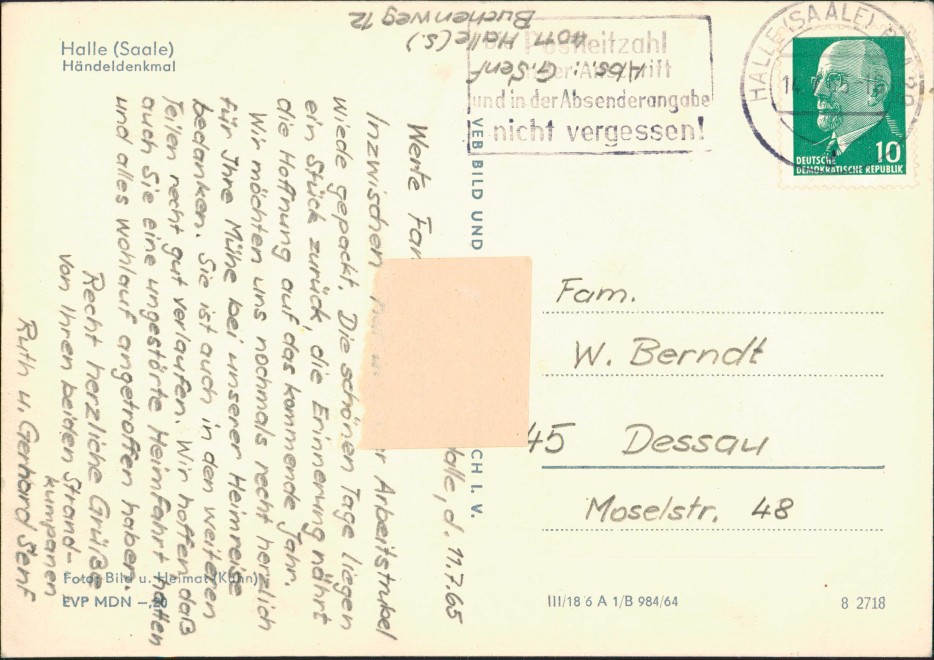 Halle (Saale)
Händeldenkmal
Abs.: G. Senf
4011 Halle(S)
Buchenweg 12
Postleitzahl
und in der Absenderangabe
nicht vergessen!
HALLE (SAALE)
DEUTSCHE
DEMOKRATISCHE REPUBLIK
10
VEB BILD UND
CH I. V.
Halle, d. 11.7.65
Werte Fam
Inzwischen Arbeitstrubel
wiede gepackt. Die schönen Tage liegen
ein Stück zurück, die Erinnerung nährt
die Hoffnung auf das kommende Jahr.
Wir möchten uns nochmals recht herzlich
für Ihre Mühe bei unserer Heimreise
bedanken. Sie ist auch in den weiteren
Teilen recht gut verlaufen. Wir hoffen daß
auch Sie eine ungestörte Heimfahrt hatten
und alles wohlauf angetroffen haben.
Recht herzliche Grüße
von Ihren beiden Strand-
kumpanen
Ruth u. Gerhard Senf
Fam.
W. Berndt
45 Dessau
Moselstr. 48
Foto: Bild u. Heimat (Kühn)
EVP MDN –,20
III/18 6 A 1/B 984/64
8 2718